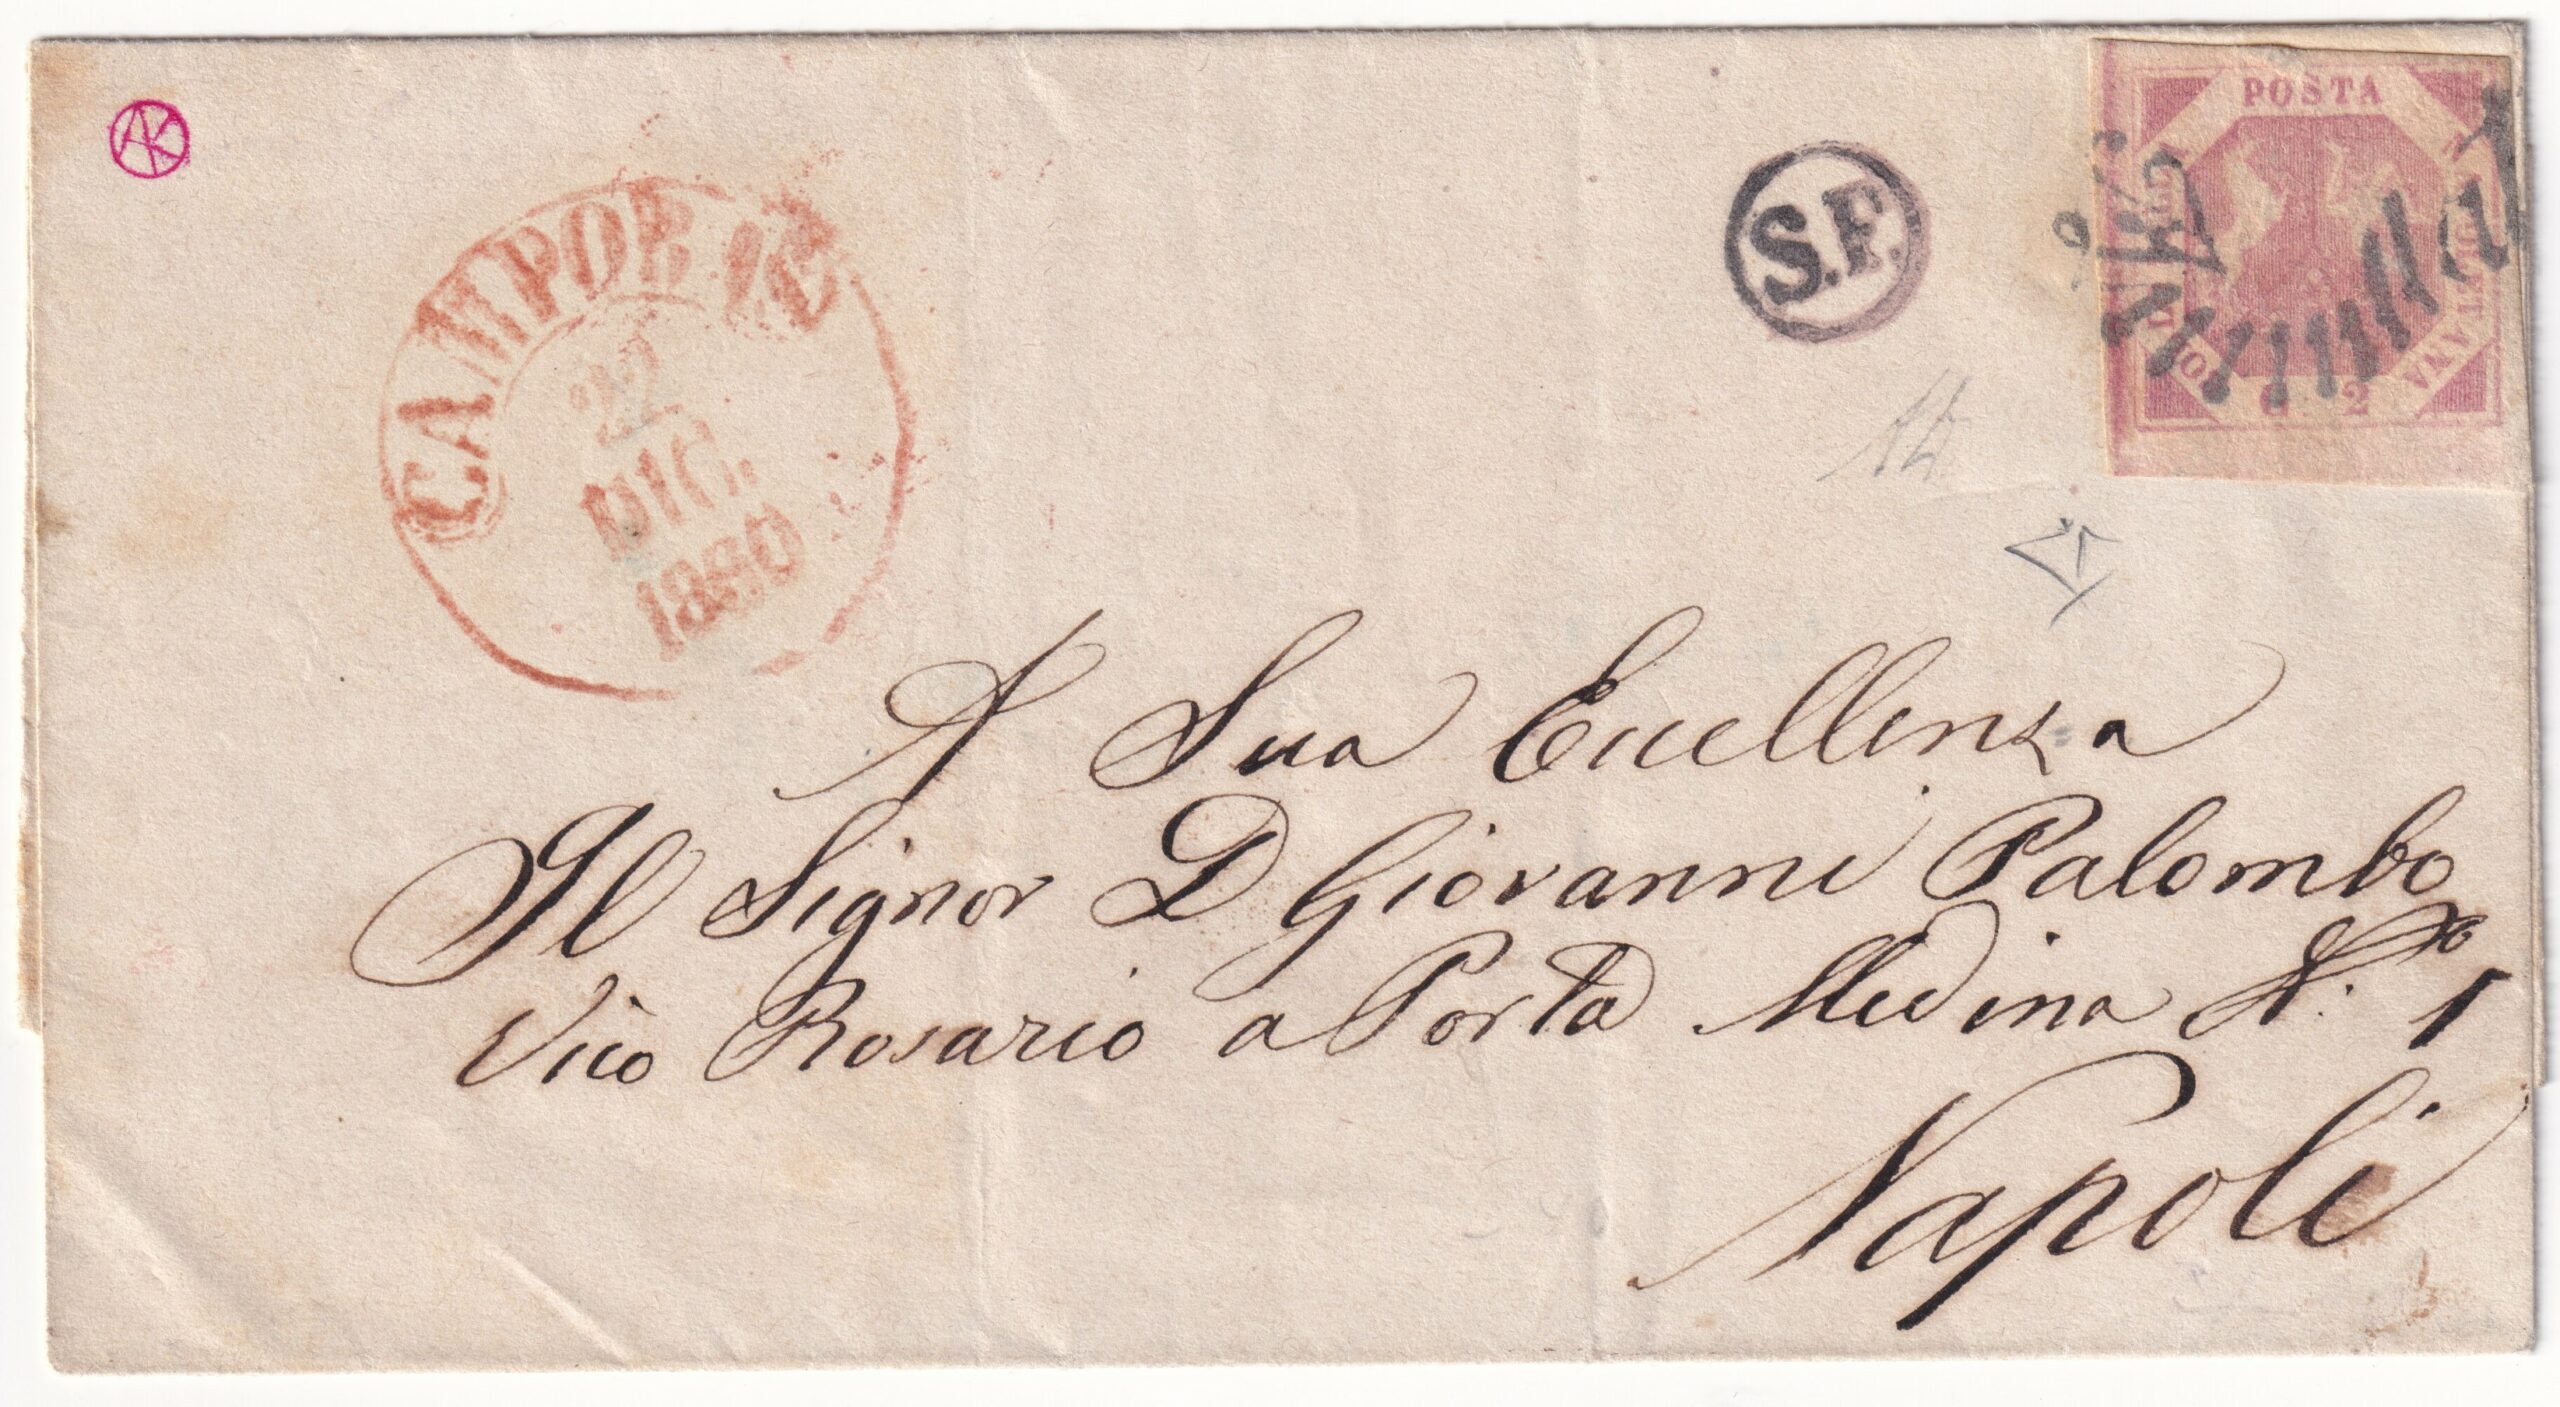 AK
CAMPOB
22
DIC.
1860
S.F.
POSTA
G 2
Annullato
A Sua Eccellenza
Il Signor D Giovanni Palombo
Vico Rosario a Porta Medina N.º 1
Napoli